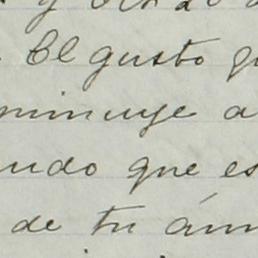 El gusto
minuye a
udo que es
de tu ám